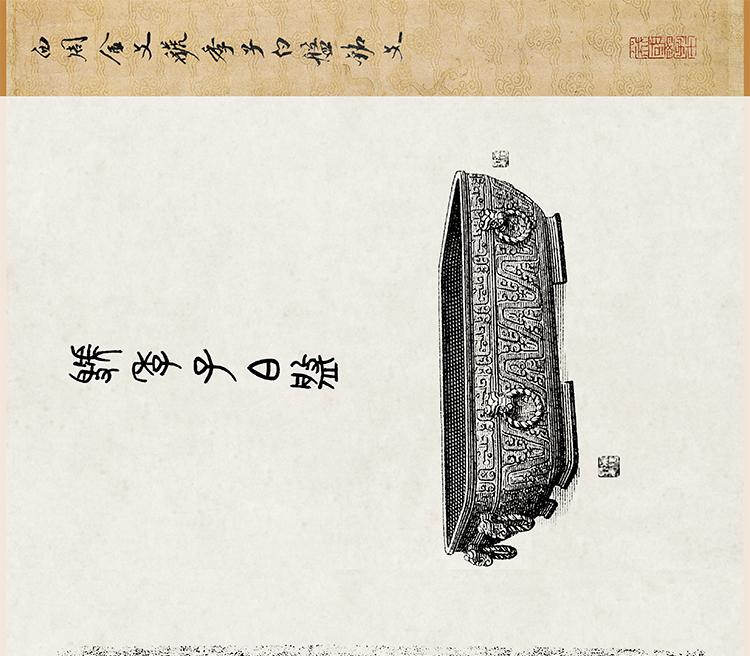 西周金文虢季子白盤銘文
虢季子白盤